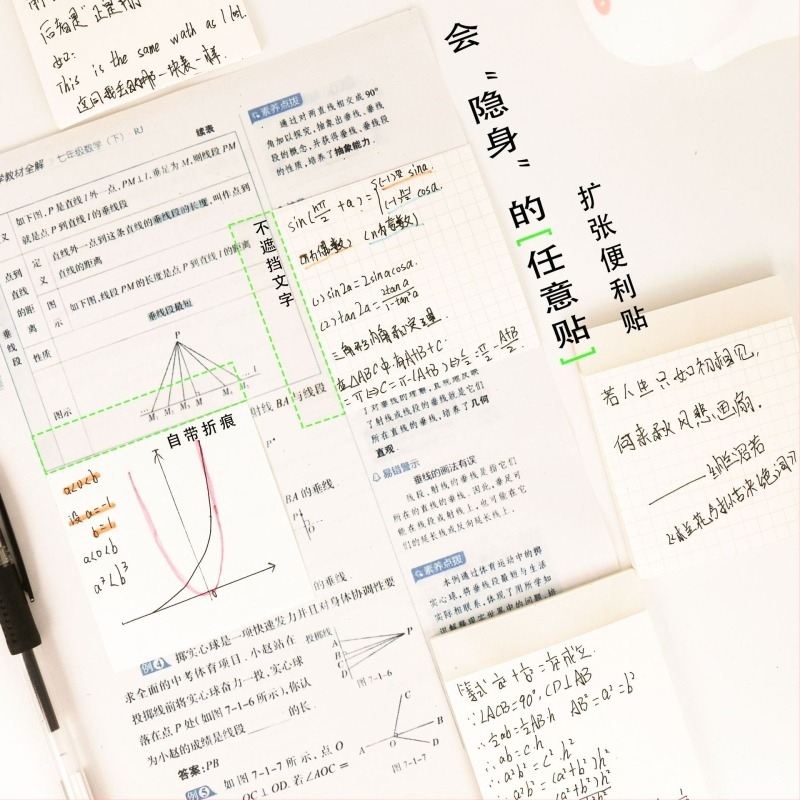 后者是"正是那
如:
This is the same wath as I lost.
这同我丢的那一块表一样.
学教材全解 七年级数学(下) RJ
续表
如下图,P是直线l外一点,PM⊥l,垂足为M,则线段PM
就是点P到直线l的垂线段
直线外一点到这条直线的垂线段的长度,叫作点到
直线的距离
定义
点到直线的距离
如下图,线段PM的长度是点P到直线l的距离
图示
垂线段
性质
垂线段最短
P
图示
M₁ M₂ M₃ M M₄ M₅ l
素养点拨
通过对两直线相交成90°
角加以探究,抽象出垂线、垂线
段的概念,并获得垂线、垂线段
的性质,培养了抽象能力.
会"隐身"的[任意贴]
扩张便利贴
不遮挡文字
自带折痕
sin(nπ/2+a)=
sina
cosa.
(n为偶数) (n为奇数)
(1) sin2a=2sinacosa.
(2) tan2a=2tana/1-tan²a
三角形内角和定理
在△ABC中,有A+B+C
=π⇔C=π-(A+B)⇔C/2=π/2-A+B/2.
了射线或线段的垂线就是它们
所在直线的垂线,培养了几何
直观.
易错警示
垂线的画法有误
线段、射线的垂线是指它们
所在的直线的垂线.因此,垂足可
能在线段或射线上,也可能在它
们的延长线或反向延长线上.
素养点拨
本例通过体育运动中的掷
实心球,将垂线段最短与生活
实际相联系,体现了用所学知
射线BA与线段
BA的垂线.
的垂线.
a<0<b
设a=-1
b=1
a<0<b
a³<b³
例4 掷实心球是一项快速发力并且对身体协调性要
求全面的中考体育项目.小赵站在
投掷线前将实心球奋力一投,实心球
落在点P处(如图7-1-6所示),你认
为小赵的成绩是线段______的长.
答案:PB
投掷线
A
B
C
D
P
图7-1-6
例5 如图7-1-7所示,点O
OC⊥OD.若∠AOC=
C
B
A
O
D
图7-1-7
若人生只如初相见,
何来秋风悲画扇.
——纳兰容若
等式1/a²+1/b²=1/h²成立.
∵∠ACB=90°,CD⊥AB
∴½ab=½AB·h AB²=a²+b²
∴ab=c·h
∴a²b²=c²·h²
∴a²b²=(a²+b²)h²